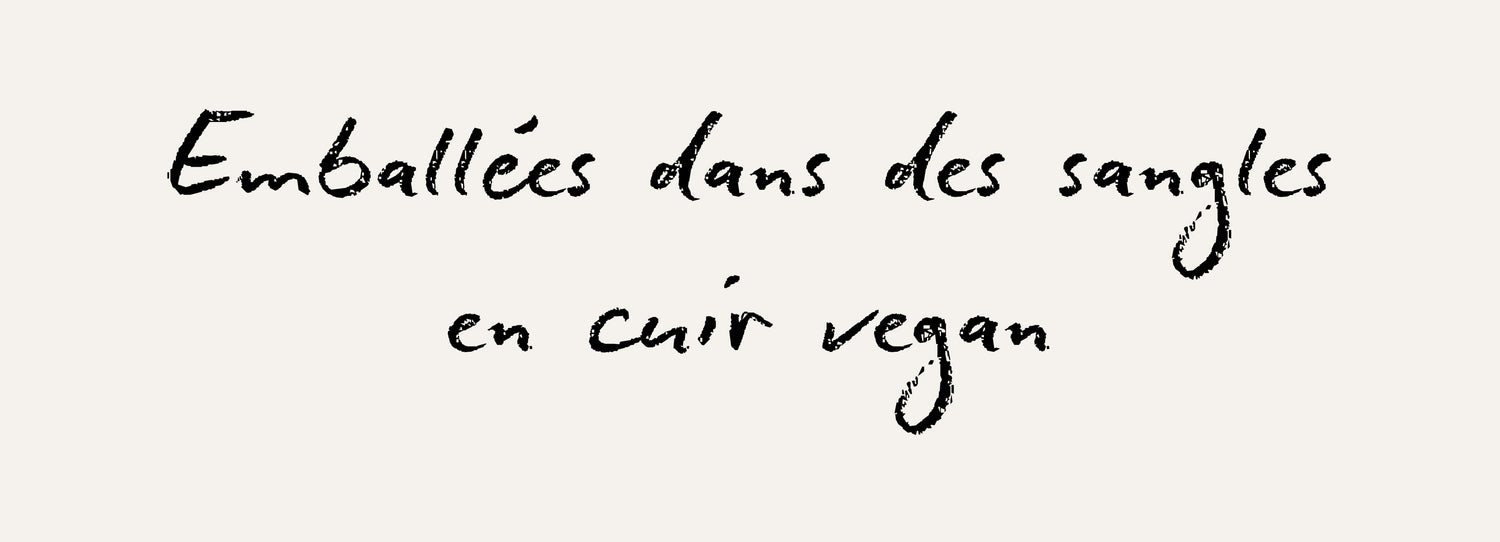 Emballées dans des sangles
en cuir vegan